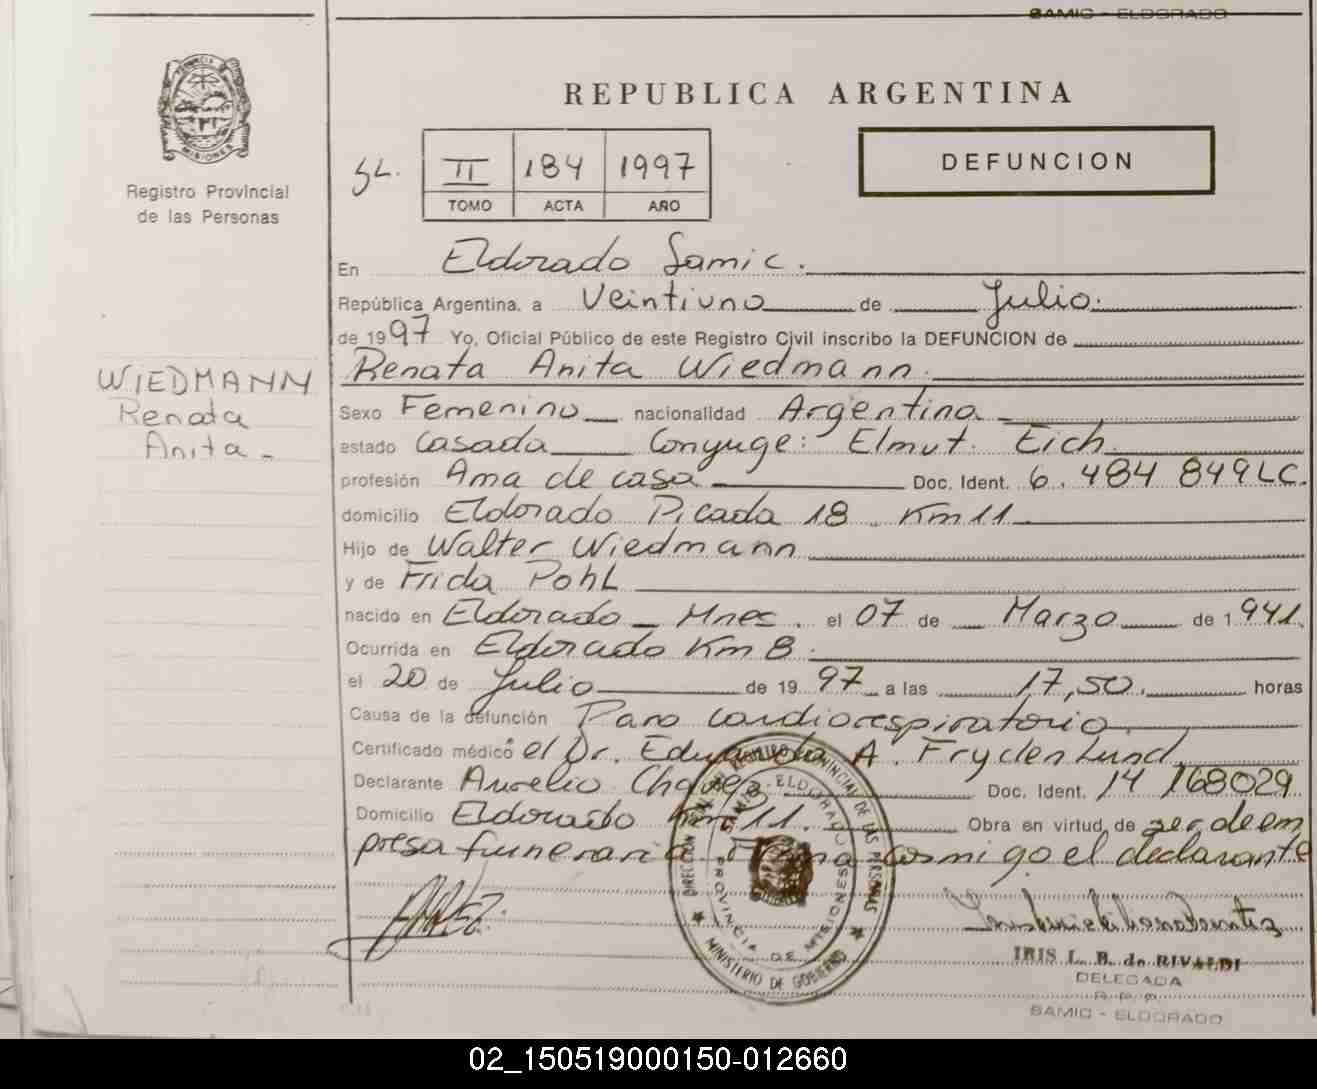 SAMIC - ELDORADO
PROVINCIA DE MISIONES
Registro Provincial
de las Personas
REPUBLICA ARGENTINA
II 184 1997
TOMO ACTA AÑO
DEFUNCION
En Eldorado Samic.
República Argentina, a Veintiuno de Julio.
de 1997 Yo, Oficial Público de este Registro Civil inscribo la DEFUNCION de
Renata Anita Wiedmann.
WIEDMANN
Renata
Anita -
Sexo Femenino nacionalidad Argentina
estado Casada Conyuge: Elmut. Eich
profesión Ama de casa Doc. Ident. 6.484 849 LC.
domicilio Eldorado Picada 18. Km 11
Hijo de Walter Wiedmann
y de Frida Pohl
nacido en Eldorado - Mnes. el 07 de Marzo de 1.941.
Ocurrida en Eldorado Km 8.
el 20 de Julio de 1997 a las 17,50. horas
Causa de la defunción Paro cardiorespiratorio.
Certificado médico el Dr. Eduardo A. Frydenlund
Declarante Aurelio Chavez Doc. Ident. 14 168029
Domicilio Eldorado Km 11. Obra en virtud de ser de em
presa funeraria Firma conmigo el declarante
DIRECCION GRAL. DEL REGISTRO PROVINCIAL DE LAS PERSONAS
SAMIC - ELDORADO
PROVINCIA DE MISIONES
MINISTERIO DE GOBIERNO
IRIS L. B. de RIVALDI
DELEGADA
R.P.P.
SAMIC - ELDORADO
02_150519000150-012660